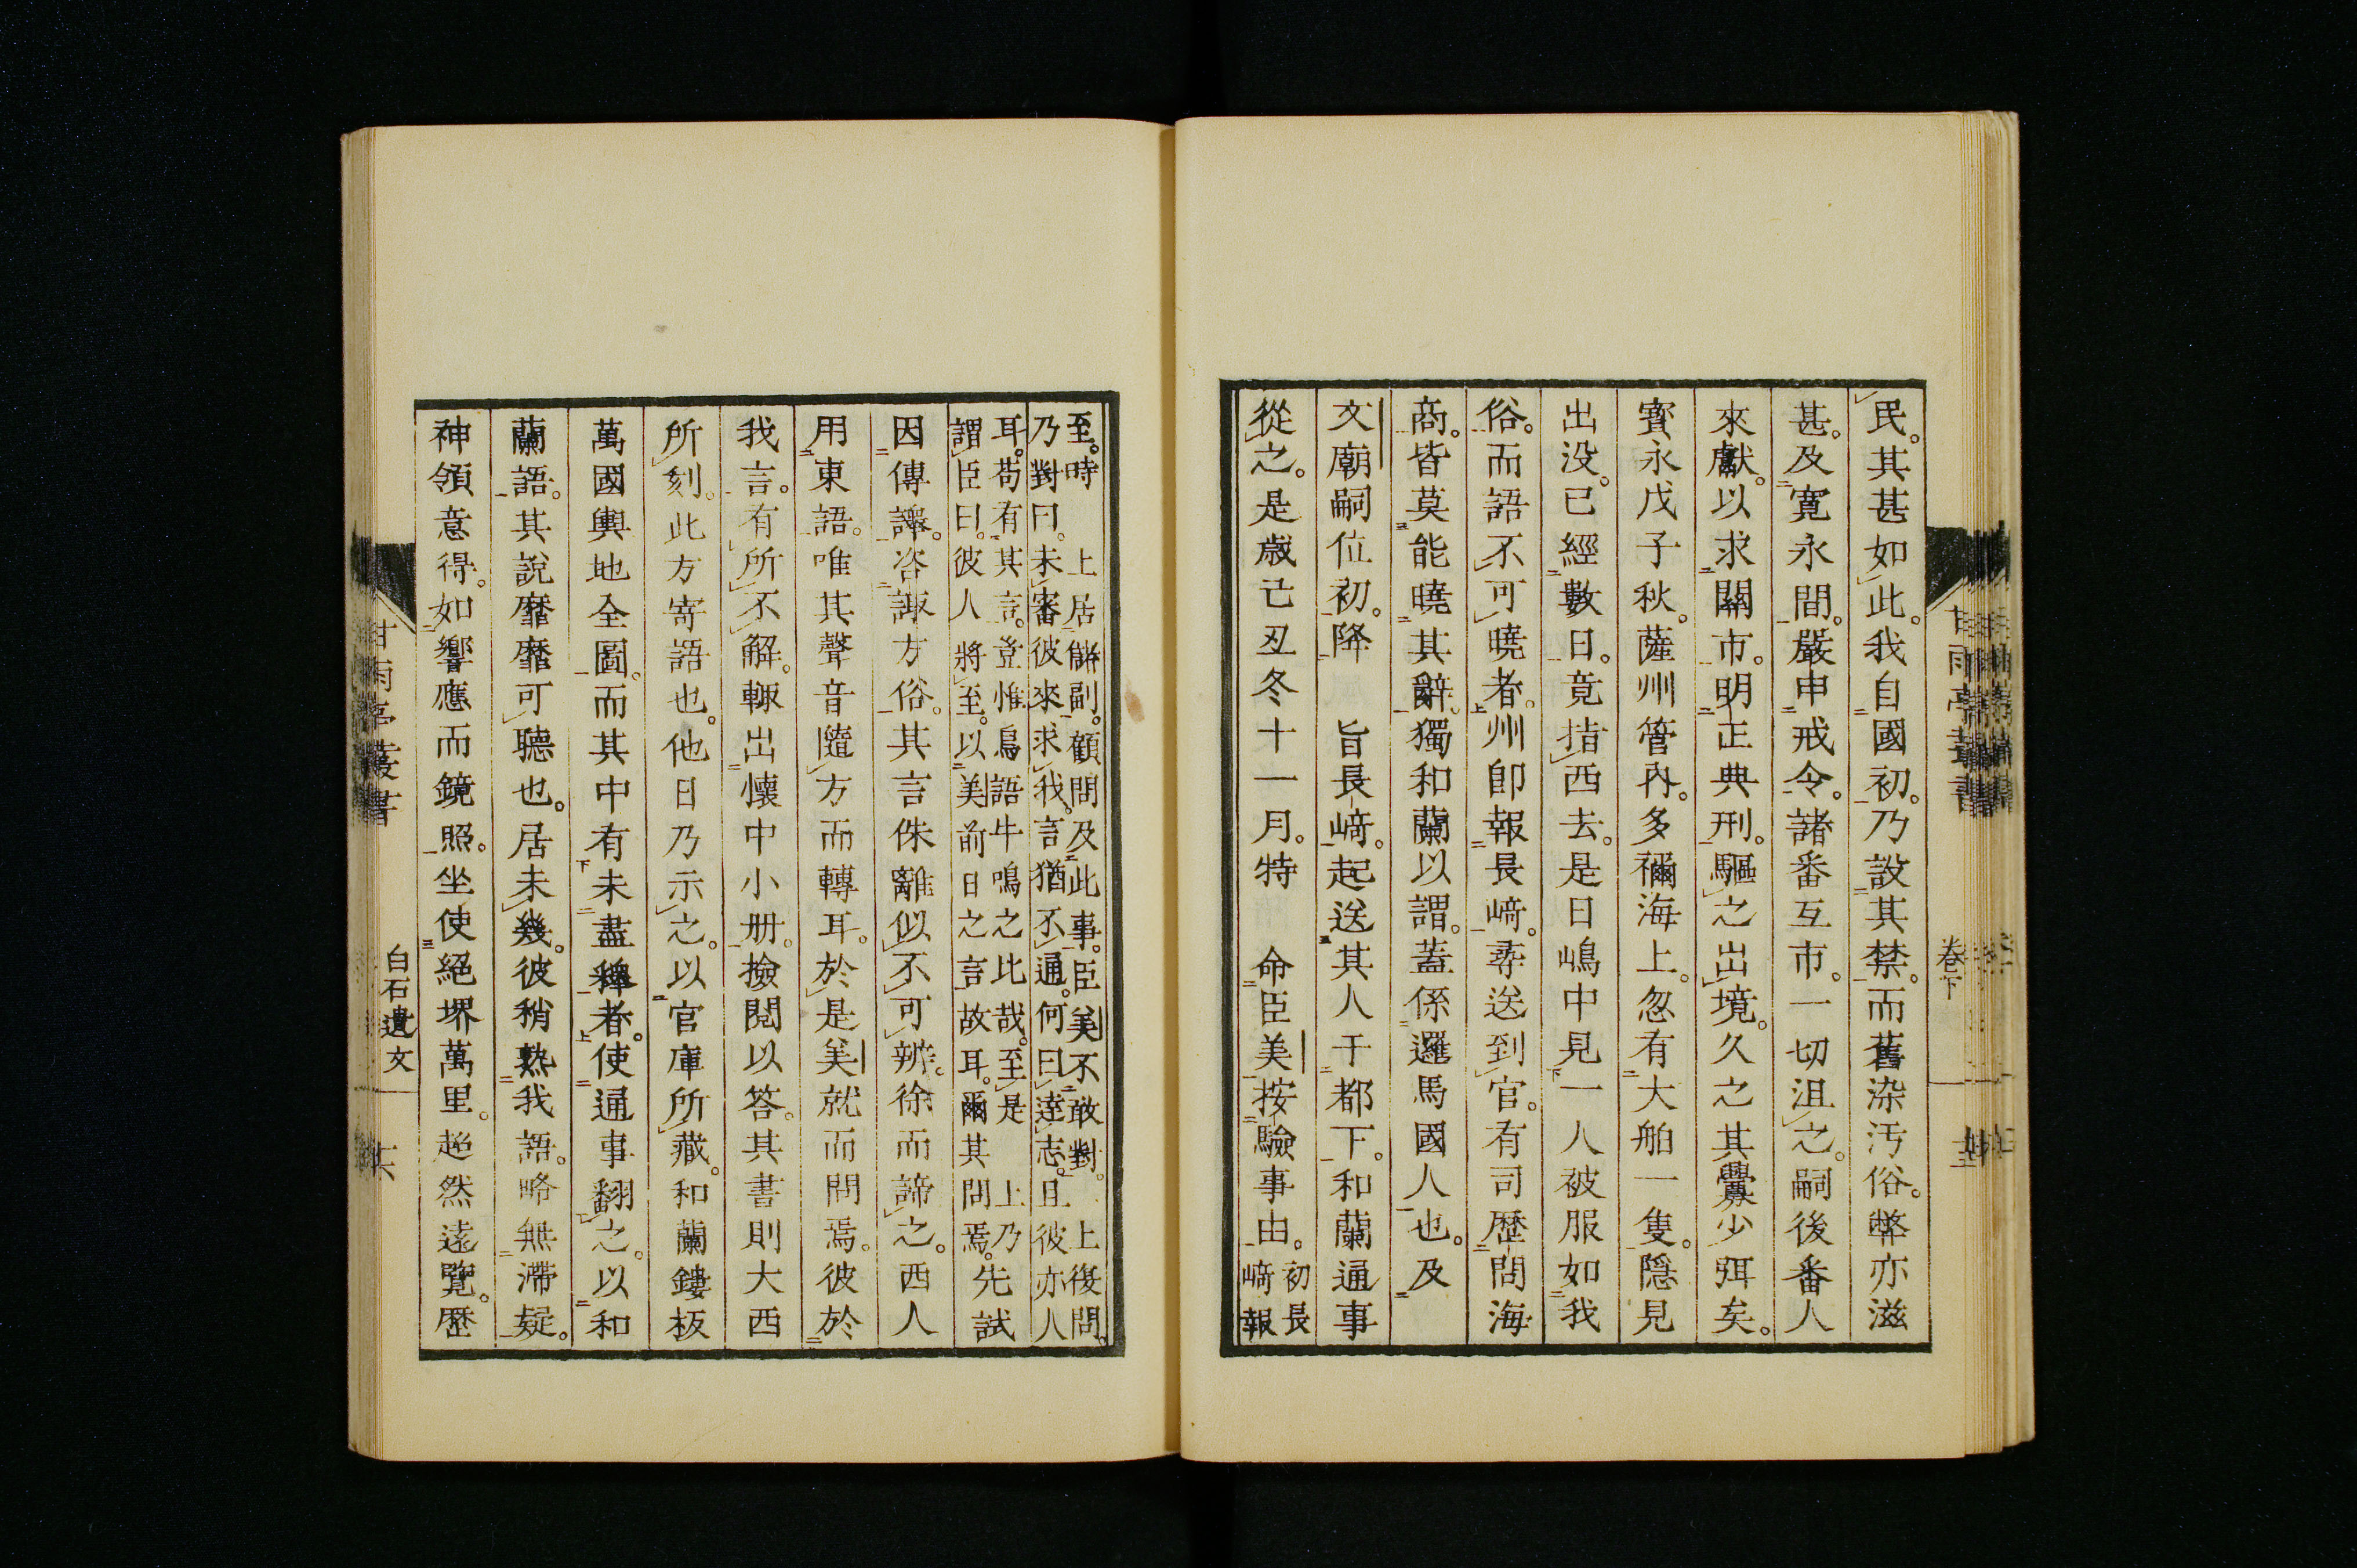 民。其甚如此。我自國初。乃設其禁。而舊染汚俗。弊亦滋
甚。及寛永間。嚴申戒令。諸番互市。一切沮之。嗣後番人
來獻。以求關市。明正典刑。驅之出境。久之其釁少弭矣。
寶永戊子秋。薩州管內。多禰海上。忽有大舶一隻。隱見
出没。已經數日。竟指西去。是日嶋中見一人被服如我
俗。而語不可曉者。州卽報長﨑。尋送到官。有司歷問海
商。皆莫能曉其辭。獨和蘭以謂。蓋係邏馬國人也。及
文廟嗣位初。降 旨長﨑。起送其人于都下。和蘭通事
從之。是歲己丑冬十一月。特 命臣美按驗事由。初長
﨑報
甘雨亭叢書
卷下
至。時 上居儲副。顧問及此事。臣美不敢對。 上復問。
乃對曰。未審彼來求我。言猶不通。何曰達志。且彼亦人
耳。苟有其言。豈惟鳥語牛鳴之比哉。至是 上乃
謂臣曰。彼人將至。以美前日之言故耳。爾其問焉。先試
因傳譯。咨諏方俗。其言侏離似不可辨。徐而諦之。西人
用東語。唯其聲音隨方而轉耳。於是美就而問焉。彼於
我言。有所不解。輙出懷中小册。撿閱以答。其書則大西
所刻。此方寄語也。他日乃示之。以官庫所藏。和蘭鏤板
萬國輿地全圖。而其中有未盡釋者。使通事翻之。以和
蘭語。其說靡靡可聽也。居未幾。彼稍熟我語。略無滯疑。
神領意得。如響應而鏡照。坐使絕堺萬里。超然遠覽。歷
甘雨亭叢書
白石遺文